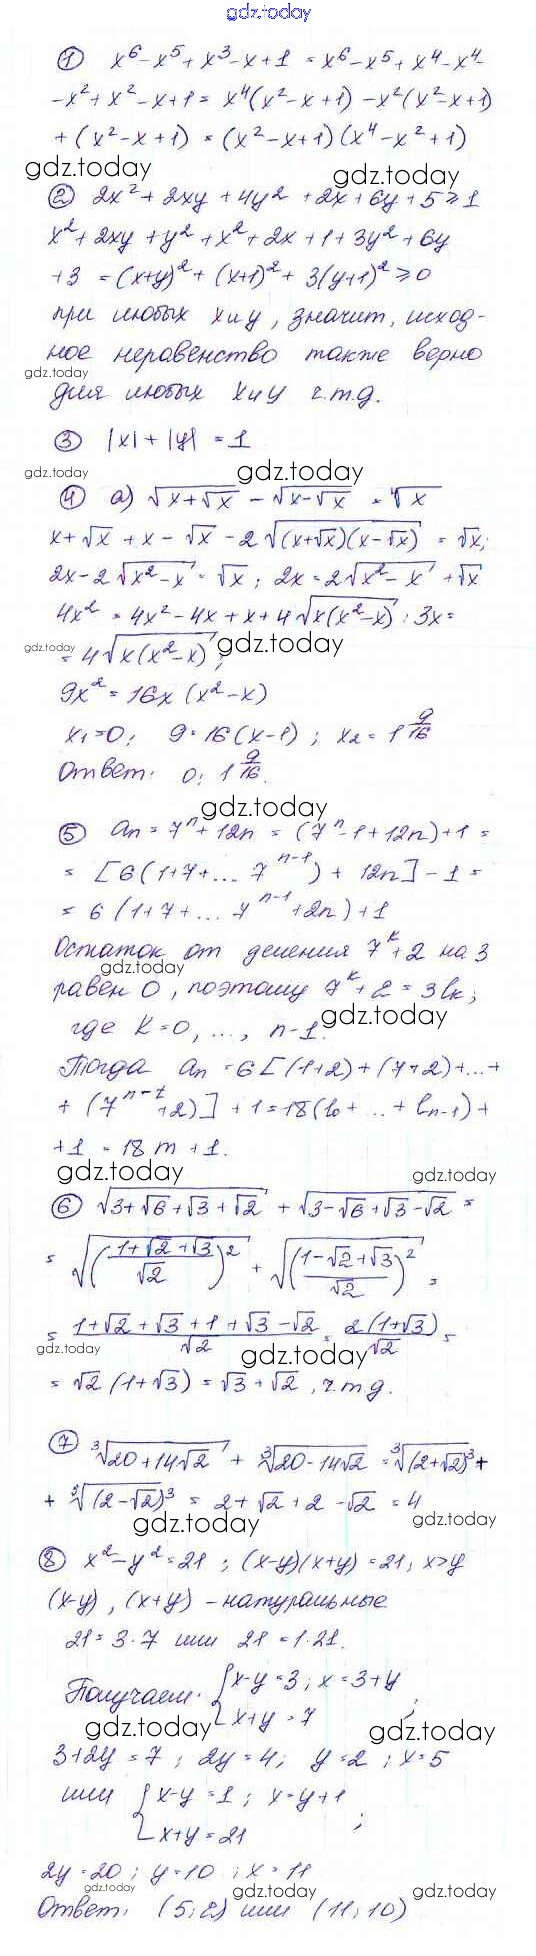 gdz.today
① x⁶ - x⁵ + x³ - x + 1 = x⁶ - x⁵ + x⁴ - x⁴ -
- x² + x² - x + 1 = x⁴(x² - x + 1) - x²(x² - x + 1)
+ (x² - x + 1) = (x² - x + 1)(x⁴ - x² + 1)
gdz.today gdz.today
② 2x² + 2xy + 4y² + 2x + 6y + 5 ≥ 1
x² + 2xy + y² + x² + 2x + 1 + 3y² + 6y
+ 3 = (x+y)² + (x+1)² + 3(y+1)² ≥ 0
при любых x и y, значит, исход-
ное неравенство также верно
gdz.today
для любых x и y ч.т.д.
③ |x| + |y| = 1
gdz.today gdz.today
④ а) √(x+√x) - √(x-√x) = ⁴√x
x + √x + x - √x - 2√((x+√x)(x-√x)) = √x;
2x - 2√(x² - x) = √x; 2x = 2√(x² - x) + √x
4x² = 4x² - 4x + x + 4√(x(x² - x)); 3x =
gdz.today gdz.today
= 4√(x(x² - x));
9x² = 16x(x² - x)
x₁ = 0; 9 = 16(x - 1); x₂ = 1 9/16
Ответ: 0; 1 9/16.
gdz.today
⑤ aₙ = 7ⁿ + 12n = (7ⁿ - 1 + 12n) + 1 =
= [6(1 + 7 + ... 7ⁿ⁻¹) + 12n] - 1 =
= 6(1 + 7 + ... 7ⁿ⁻¹ + 2n) + 1
Остаток от деления 7ᵏ + 2 на 3
gdz.today
равен 0, поэтому 7ᵏ + 2 = 3lₖ;
где k = 0, ..., n-1.
gdz.today
Тогда aₙ = 6[(1+2) + (7+2) + ... +
+ (7ⁿ⁻¹ + 2)] + 1 = 18(l₀ + ... + lₙ₋₁) +
+ 1 = 18m + 1.
gdz.today gdz.today
⑥ √(3+√6+√3+√2) + √(3-√6+√3-√2) =
= √(((1+√2+√3)/√2)²) + √(((1-√2+√3)/√2)²) =
= (1+√2+√3+1+√3-√2)/√2 = 2(1+√3)/√2 =
gdz.today gdz.today
= √2(1+√3) = √3+√2, ч.т.д.
⑦ ³√(20+14√2) + ³√(20-14√2) = ³√((2+√2)³) +
+ ³√((2-√2)³) = 2+√2+2-√2 = 4
gdz.today gdz.today
⑧ x² - y² = 21; (x-y)(x+y) = 21, x>y
(x-y), (x+y) - натуральные
21 = 3·7 или 21 = 1·21.
Получаем: { x-y = 3; x = 3+y
x+y = 7;
gdz.today gdz.today
3+2y = 7; 2y = 4; y = 2; x = 5
или { x-y = 1; x = y+1
x+y = 21;
2y = 20; y = 10; x = 11
gdz.today gdz.today gdz.today
Ответ: (5; 2) или (11; 10)